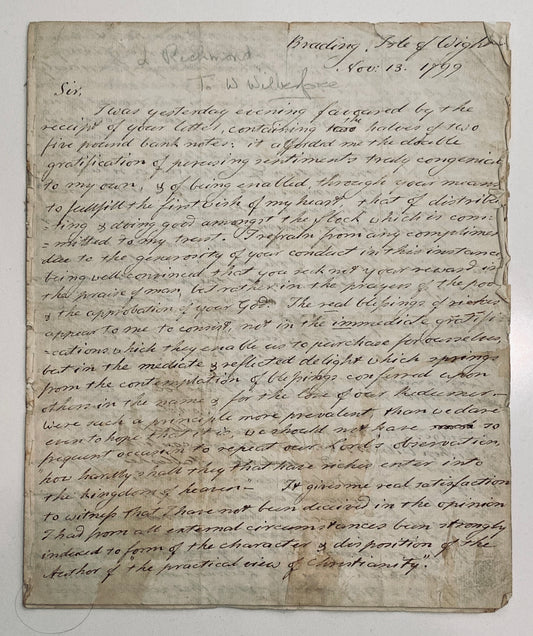 Brading, Isle of Wight
Nov: 13. 1799
L Richmond
To W Wilberforce
Sir,
I was yesterday evening favoured by the
receipt of your letter, containing the halves of two
five pound bank notes: it afforded me the double
gratification of perusing sentiments truly congenial
to my own, & of being enabled through your means
to fullfill the first wish of my heart, that of distribu
=ting & doing good amongst the flock which is com
=mitted to my trust. I refrain from any compliment
due to the generosity of your conduct in this instance
being well convinced that you seek not your reward in
the praise of man, but rather in the prayers of the poor
& the approbation of your God. The real blessings of riches
appear to me to consist, not in the immediate gratifi
=cations which they enable us to purchase for ourselves,
but in the mediate & reflected delight which springs
from the contemplation of blessings conferred upon
others in the name & for the love of our Redeemer.
Were such a principle more prevalent, than we dare
even to hope that it is, we should not have so
frequent occasion to repeat our Lord's observation,
how hardly shall they that have riches enter into
the kingdom of heaven" It gives me real satisfaction
to witness that I have not been deceived in the opinion
I had from all external circumstances been strongly
induced to form of the character & disposition of the
Author of the practical view of Christianity".